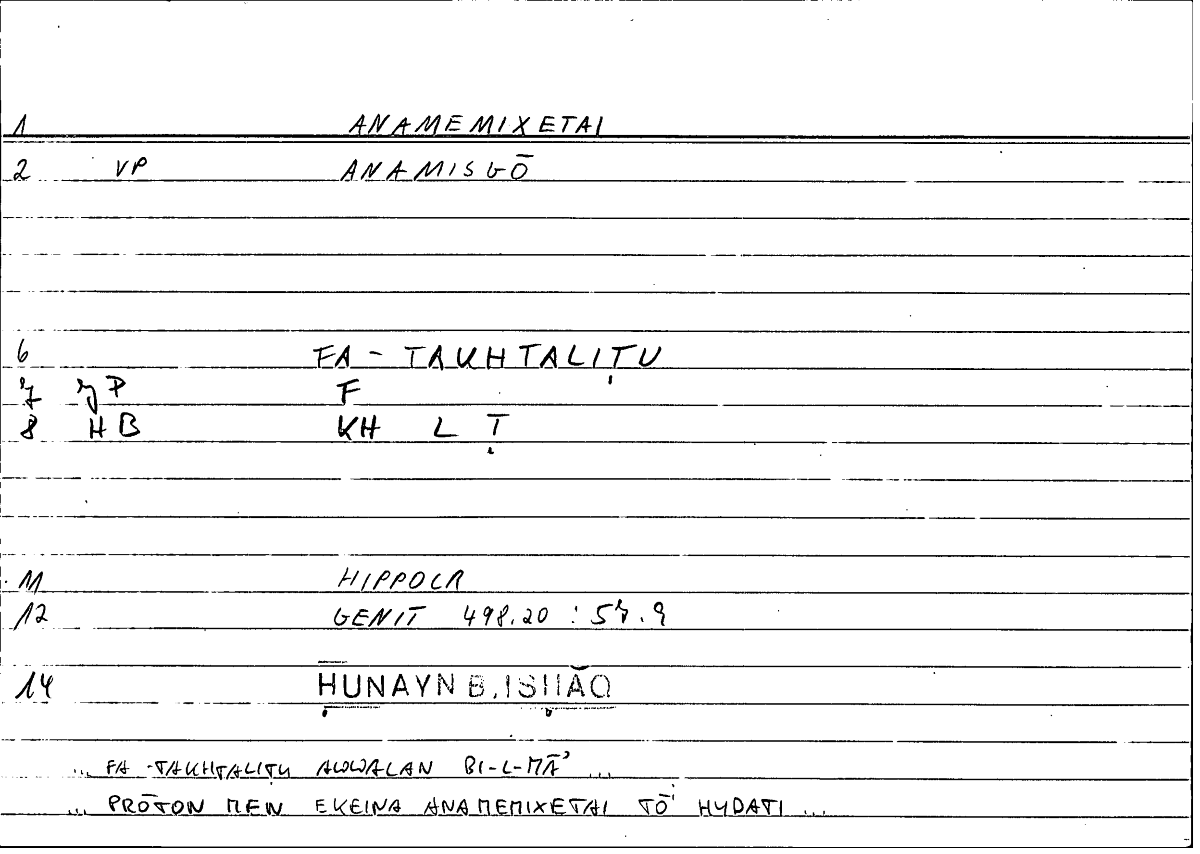 1 ANAMEMIXETAI
2 VP ANAMISGŌ
6 FA - TAKHTALIṬU
7 7P F
8 HB KH L Ṭ
11 HIPPOCR
12 GENIT 498.20 : 57.9
14 ḤUNAYN B. ISḤĀQ
... FA -TAKHTALIṬU AWWALAN BI-L-MĀʾ ...
... PRŌTON MEN EKEINA ANAMEMIXETAI TŌⁱ HYDATI ...